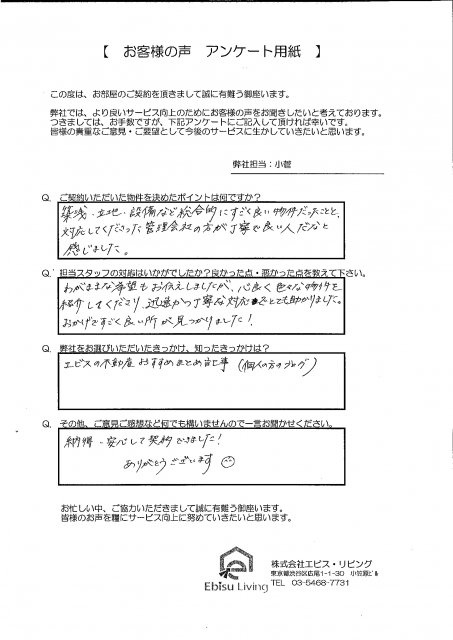 【 お客様の声 アンケート用紙 】
この度は、お部屋のご契約を頂きまして誠に有難う御座います。
弊社では、より良いサービス向上のためにお客様の声をお聞きしたいと考えております。
つきましては、お手数ですが、下記アンケートにご記入して頂ければ幸いです。
皆様の貴重なご意見・ご要望として今後のサービスに生かしていきたいと思います。
弊社担当：小菅
Q. ご契約いただいた物件を決めたポイントは何ですか？
築浅・立地・設備など総合的にすごく良い物件だったことと、
対応してくださった管理会社の方が丁寧で良い人だなと
感じました。
Q. 担当スタッフの対応はいかがでしたか？良かった点・悪かった点を教えて下さい。
わがままな希望もお伝えしましたが、心良く色々な物件を
紹介してくださり、迅速かつ丁寧な対応 とても助かりました。
おかげですごく良い所が見つかりました！
Q. 弊社をお選びいただいたきっかけ、知ったきっかけは？
エビスの不動産おすすめまとめ記事（個人の方のブログ）
Q. その他、ご意見ご感想など何でも構いませんので一言お聞かせください。
納得・安心して契約できました！
ありがとうございます
お忙しい中、ご協力いただきまして誠に有難う御座います。
皆様のお声を糧にサービス向上に努めていきたいと思います。
Ebisu Living
株式会社エビス・リビング
東京都渋谷区広尾1-1-30 小笠原ビル
TEL 03-5468-7731